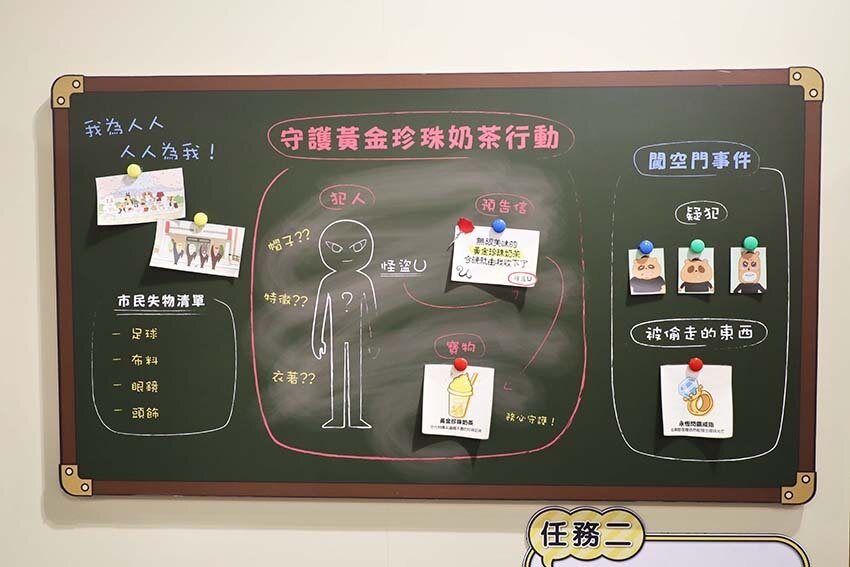 我為人人
人人為我！
市民失物清單
－ 足球
－ 布料
－ 眼鏡
－ 頭飾
守護黃金珍珠奶茶行動
犯人
帽子??
特徵??
衣著??
?
怪盜U
預告信
無限美味的
黃金珍珠奶茶
今晚就由我收下了
怪盜U
寶物
黃金珍珠奶茶
務必守護！
闖空門事件
疑犯
被偷走的東西
永恆閃鑽戒指
任務二